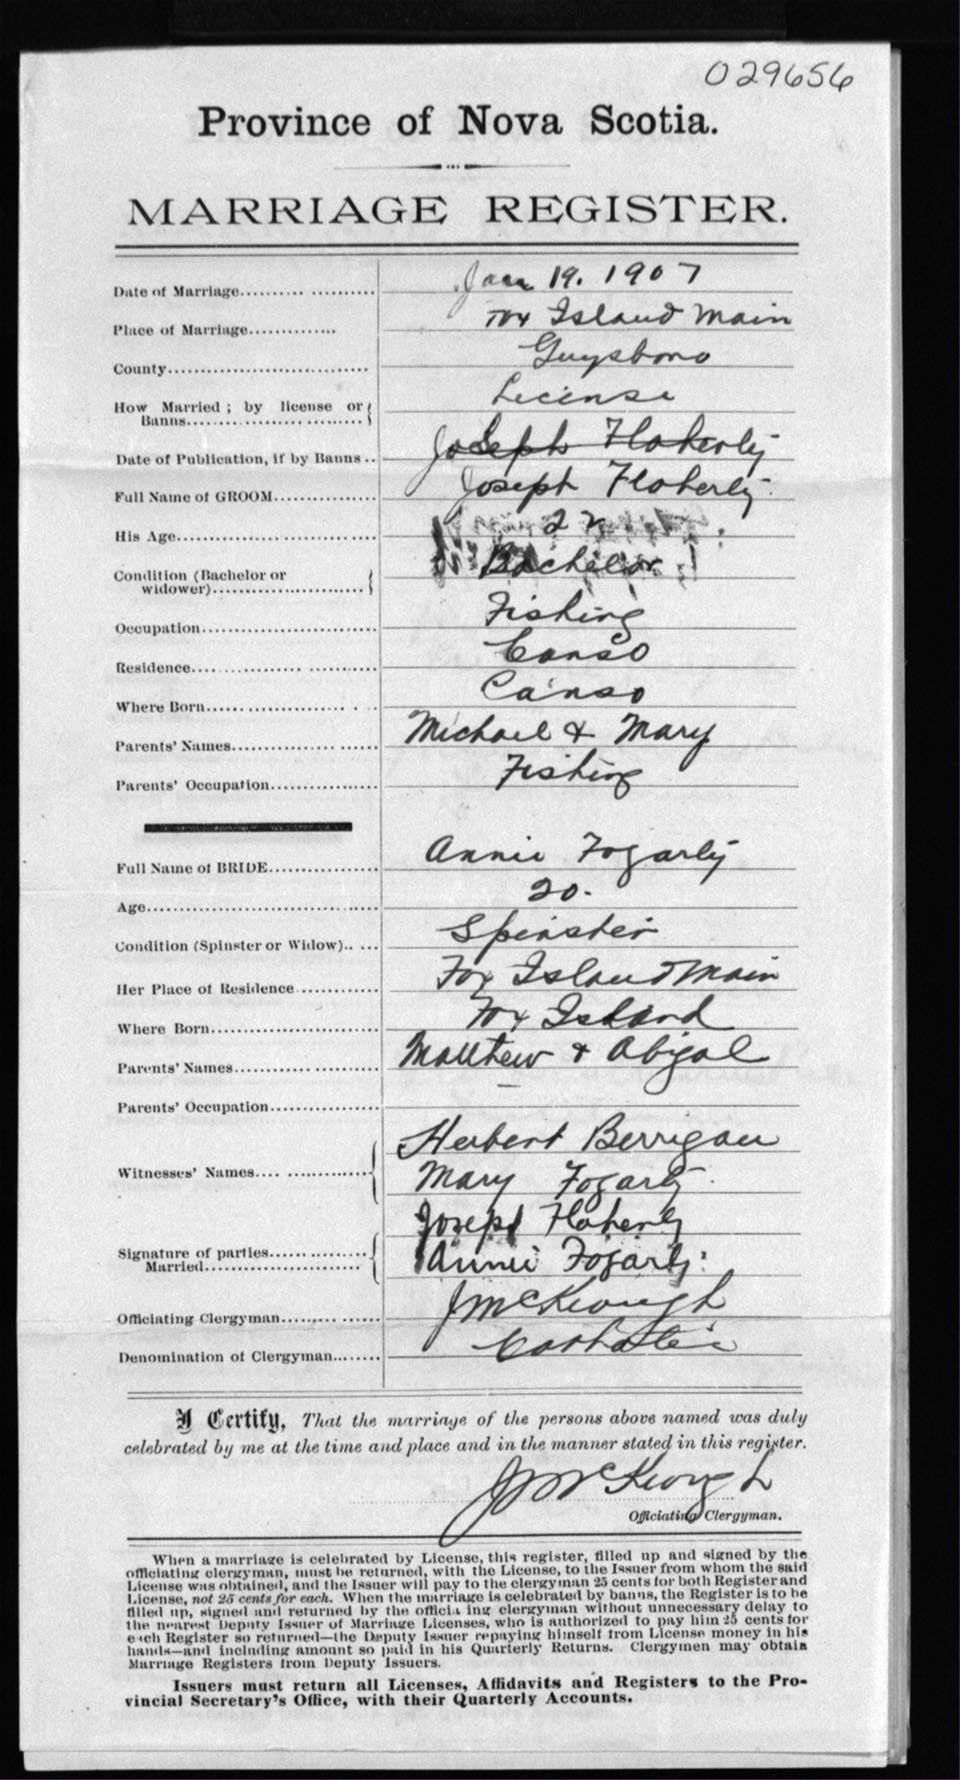 029656
Province of Nova Scotia.
MARRIAGE REGISTER.
Date of Marriage.......... ........... Jan 19. 1907
Place of Marriage............. Fox Island Main
County.............................. Guysboro
How Married ; by license or License
Banns..........................
Date of Publication, if by Banns .. Joseph Floherty
Full Name of GROOM............... Joseph Floherty
His Age............................. 22
Condition (Bachelor or Bachelor
widower)........................
Occupation.......................... Fishing
Residence.... ..................... Canso
Where Born.................... . . Canso
Parents' Names..................... Michael & Mary
Parents' Occupation................ Fishing
Full Name of BRIDE................ Annie Fogarty
Age.................................. 20.
Condition (Spinster or Widow).. ... Spinster
Her Place of Residence ............ Fox Island Main
Where Born......................... Fox Island
Parents' Names..................... Matthew & Abigal
Parents' Occupation................ —
Herbert Berrigan
Witnesses' Names.... .............. Mary Fogarty
Joseph Floherty
Signature of parties............... Annie Fogarty
Married........................
Officiating Clergyman.............. J McKeough
Denomination of Clergyman........ Catholic
I Certify, That the marriage of the persons above named was duly
celebrated by me at the time and place and in the manner stated in this register.
J McKeough
Officiating Clergyman.
When a marriage is celebrated by License, this register, filled up and signed by the
officiating clergyman, must be returned, with the License, to the Issuer from whom the said
License was obtained, and the Issuer will pay to the clergyman 25 cents for both Register and
License, not 25 cents for each. When the marriage is celebrated by banns, the Register is to be
filled up, signed and returned by the officiating clergyman without unnecessary delay to
the nearest Deputy Issuer of Marriage Licenses, who is authorized to pay him 25 cents for
each Register so returned—the Deputy Issuer repaying himself from License money in his
hands—and including amount so paid in his Quarterly Returns. Clergymen may obtain
Marriage Registers from Deputy Issuers.
Issuers must return all Licenses, Affidavits and Registers to the Pro-
vincial Secretary's Office, with their Quarterly Accounts.